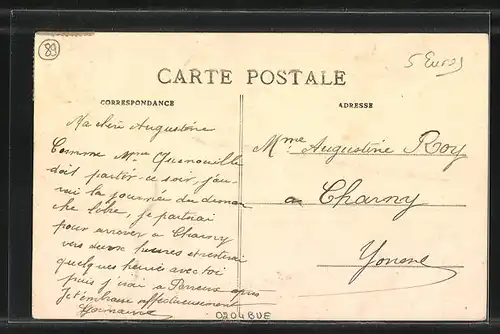 89
5 Euros
CARTE POSTALE
CORRESPONDANCE
ADRESSE
Ma chère Augustine
Comme Mme Quenouille
doit partir ce soir, j'au-
rai la journée du diman
che libre, je partirai
pour arriver à Charny
vers deux heures et resterai
quelques heures avec toi
puis j'irai à Perreux après
Je t'embrasse affectueusement
Mme Augustine Roy
à Charny
Yonne